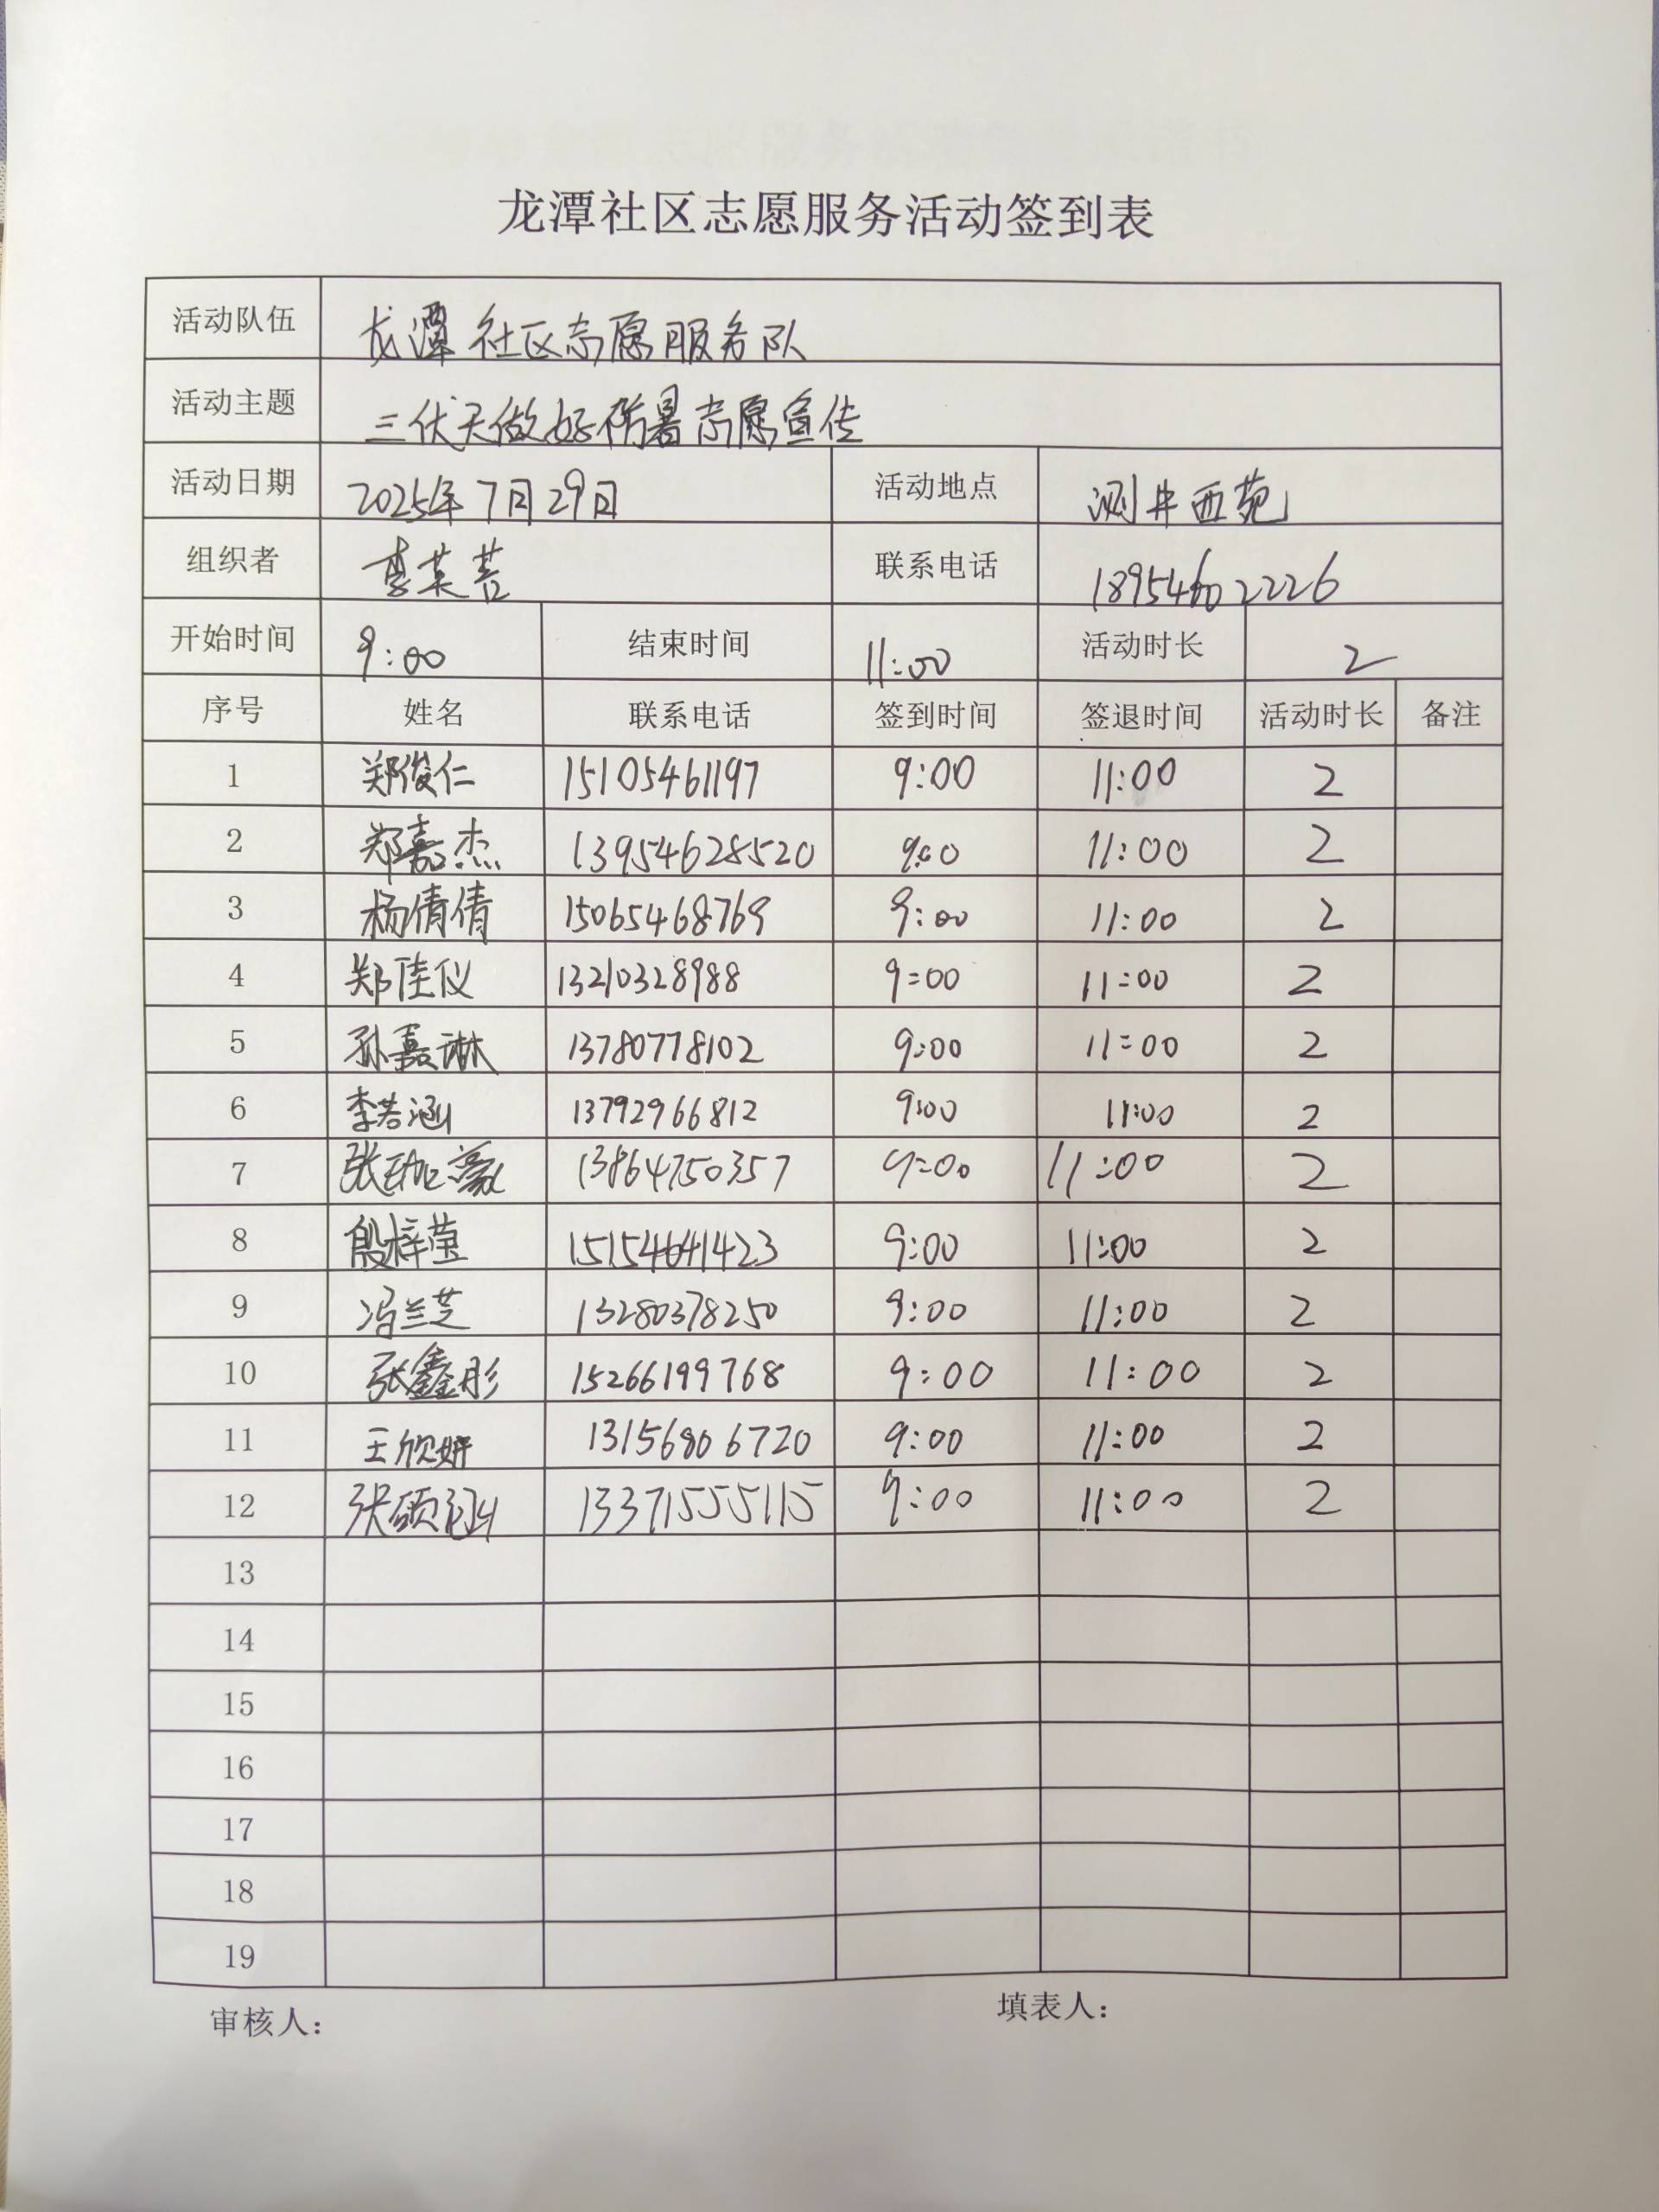 龙潭社区志愿服务活动签到表
活动队伍 龙潭社区志愿服务队
活动主题 三伏天做好防暑志愿宣传
活动日期 2025年7月29日 活动地点 测井西苑
组织者 李英菩 联系电话 18954602226
开始时间 9:00 结束时间 11:00 活动时长 2
序号 姓名 联系电话 签到时间 签退时间 活动时长 备注
1 郑俊仁 15105461197 9:00 11:00 2
2 郑嘉杰 13954628520 9:00 11:00 2
3 杨倩倩 15065468769 9:00 11:00 2
4 郑佳仪 13210328988 9:00 11:00 2
5 孙嘉琳 13780778102 9:00 11:00 2
6 李若涵 13792966812 9:00 11:00 2
7 张珈豪 13864750357 9:00 11:00 2
8 殷梓莹 15154641423 9:00 11:00 2
9 冯兰芝 13280378250 9:00 11:00 2
10 张鑫彤 15266199768 9:00 11:00 2
11 王欣妍 13156806720 9:00 11:00 2
12 张硕涵 13371555115 9:00 11:00 2
13
14
15
16
17
18
19
审核人: 填表人: